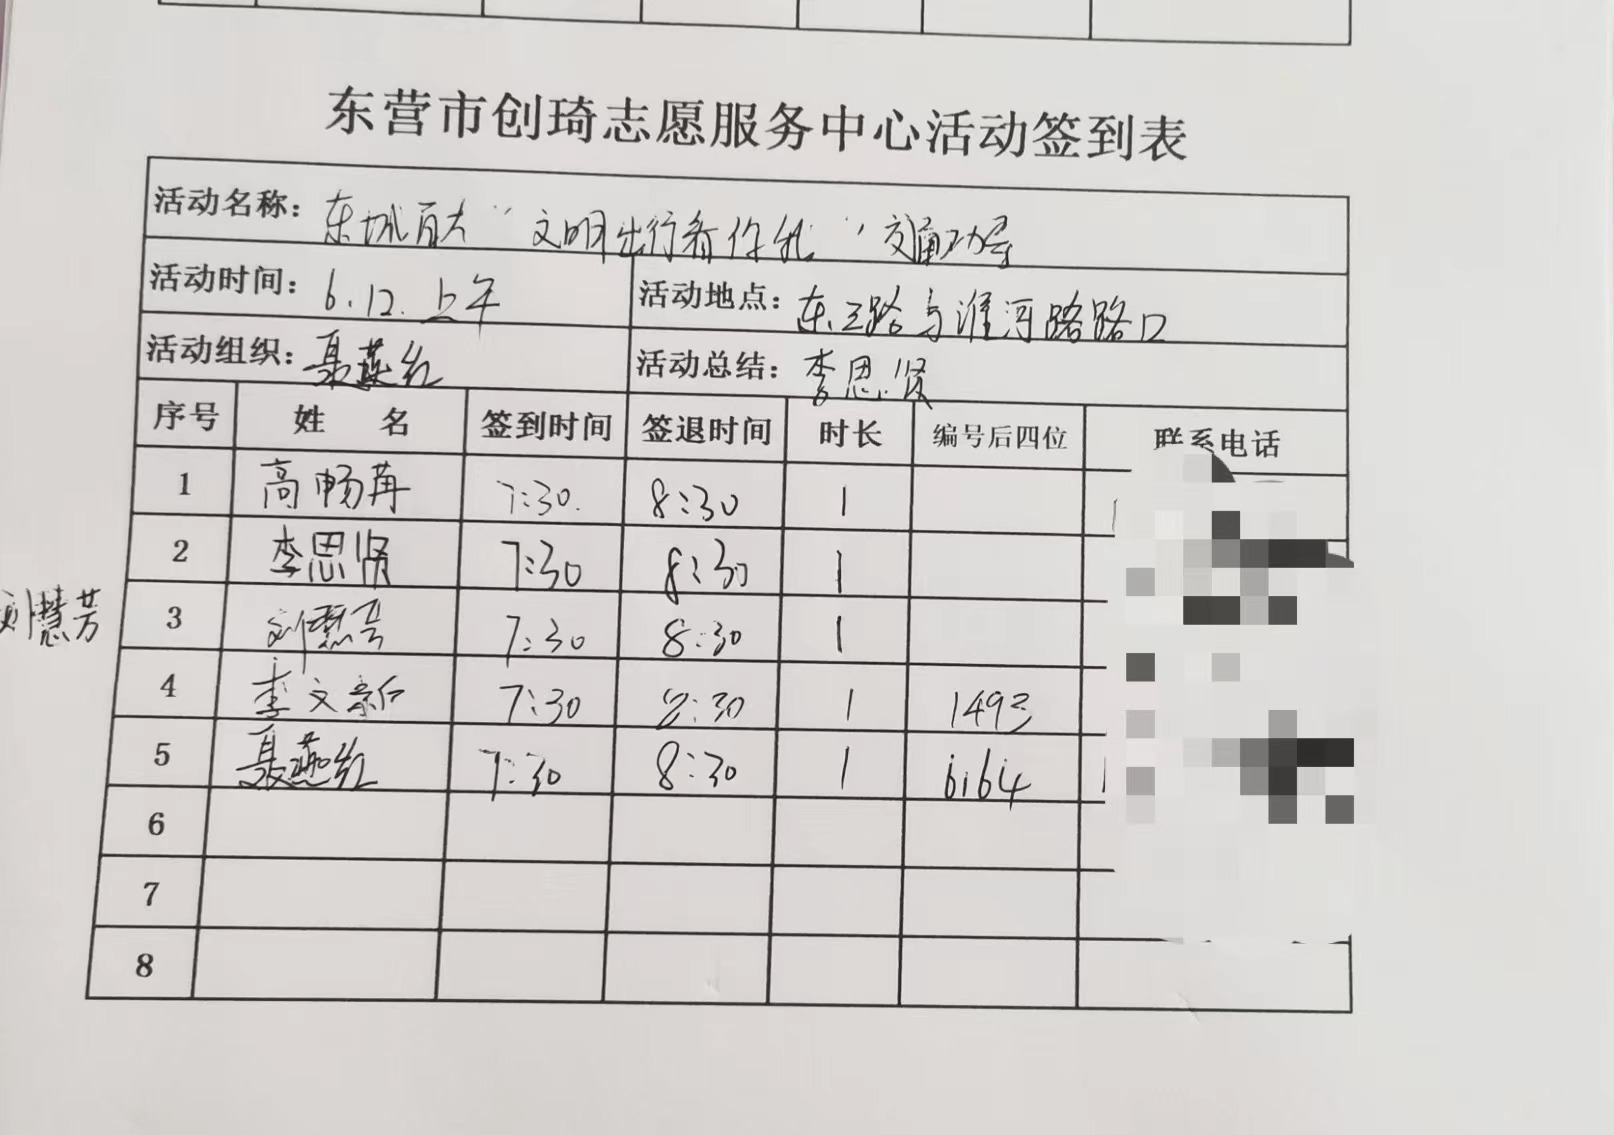 东营市创琦志愿服务中心活动签到表
活动名称：东城 “文明出行看你我”交通劝导
活动时间：6.12.上午 活动地点：东三路与淮河路路口
活动组织：聂燕红 活动总结：李思贤
序号 姓 名 签到时间 签退时间 时长 编号后四位 联系电话
1 高畅苒 7:30. 8:30 1
2 李思贤 7:30 8:30 1
刘慧芳 3 刘慧芳 7:30 8:30 1
4 李文 7:30 8:30 1 1493
5 聂燕红 7:30 8:30 1 6164
6
7
8